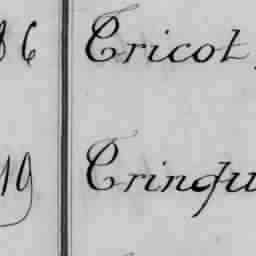 86 Tricot
19 Trinqu